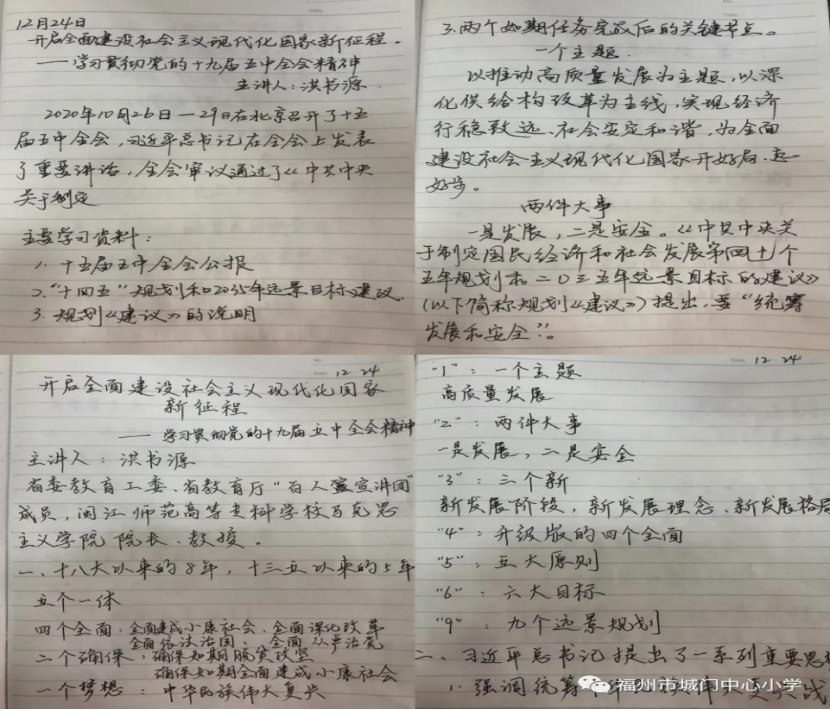 12月24日
开启全面建设社会主义现代化国家新征程。
——学习贯彻党的十九届五中全会精神
主讲人:洪书源
2020年10月26日—29日在北京召开了十五
届五中全会,习近平总书记在全会上发表
了重要讲话,全会审议通过了《中共中央
关于制定
主要学习资料:
1. 十五届五中全会公报
2.“十四五”规划和2035年远景目标建议.
3. 规划《建议》的说明
3.两个如期任务完成后的关键节点。
一个主题.
以推动高质量发展为主题,以深
化供给构改革为主线,实现经济
行稳致远、社会安定和谐,为全面
建设社会主义现代化国家开好局.走
好步。
两件大事
一是发展,二是安全。《中共中央关
于制定国民经济和社会发展第四十个
五年规划和二〇三五年远景目标的建议》
(以下简称规划《建议》)提出,要“统筹
发展和安全”。
12 24
开启全面建设社会主义现代化国家
新征程
——学习贯彻党的十九届五中全会精神
主讲人:洪书源
省委教育工委、省教育厅“百人宣讲团”
成员,闽江师范高等专科学校马克思
主义学院院长、教授。
一、十八大以来的8年,十三五以来的5年
五个一体
四个全面:全面建成小康社会、全面深化改革
全面依法治国、全面从严治党
二个确保:确保如期脱贫攻坚
确保如期全面建成小康社会
一个梦想:中华民族伟大复兴
12 24
“1”:一个主题
高质量发展
“2”:两件大事
一是发展,二是安全
“3”:三个新
新发展阶段,新发展理念、新发展格局
“4”:升级版的四个全面
“5”:五大原则
“6”:六大目标
“9”:九个远景规划
二、习近平总书记提出了一系列重要思
1. 强调统筹
福州市城门中心小学